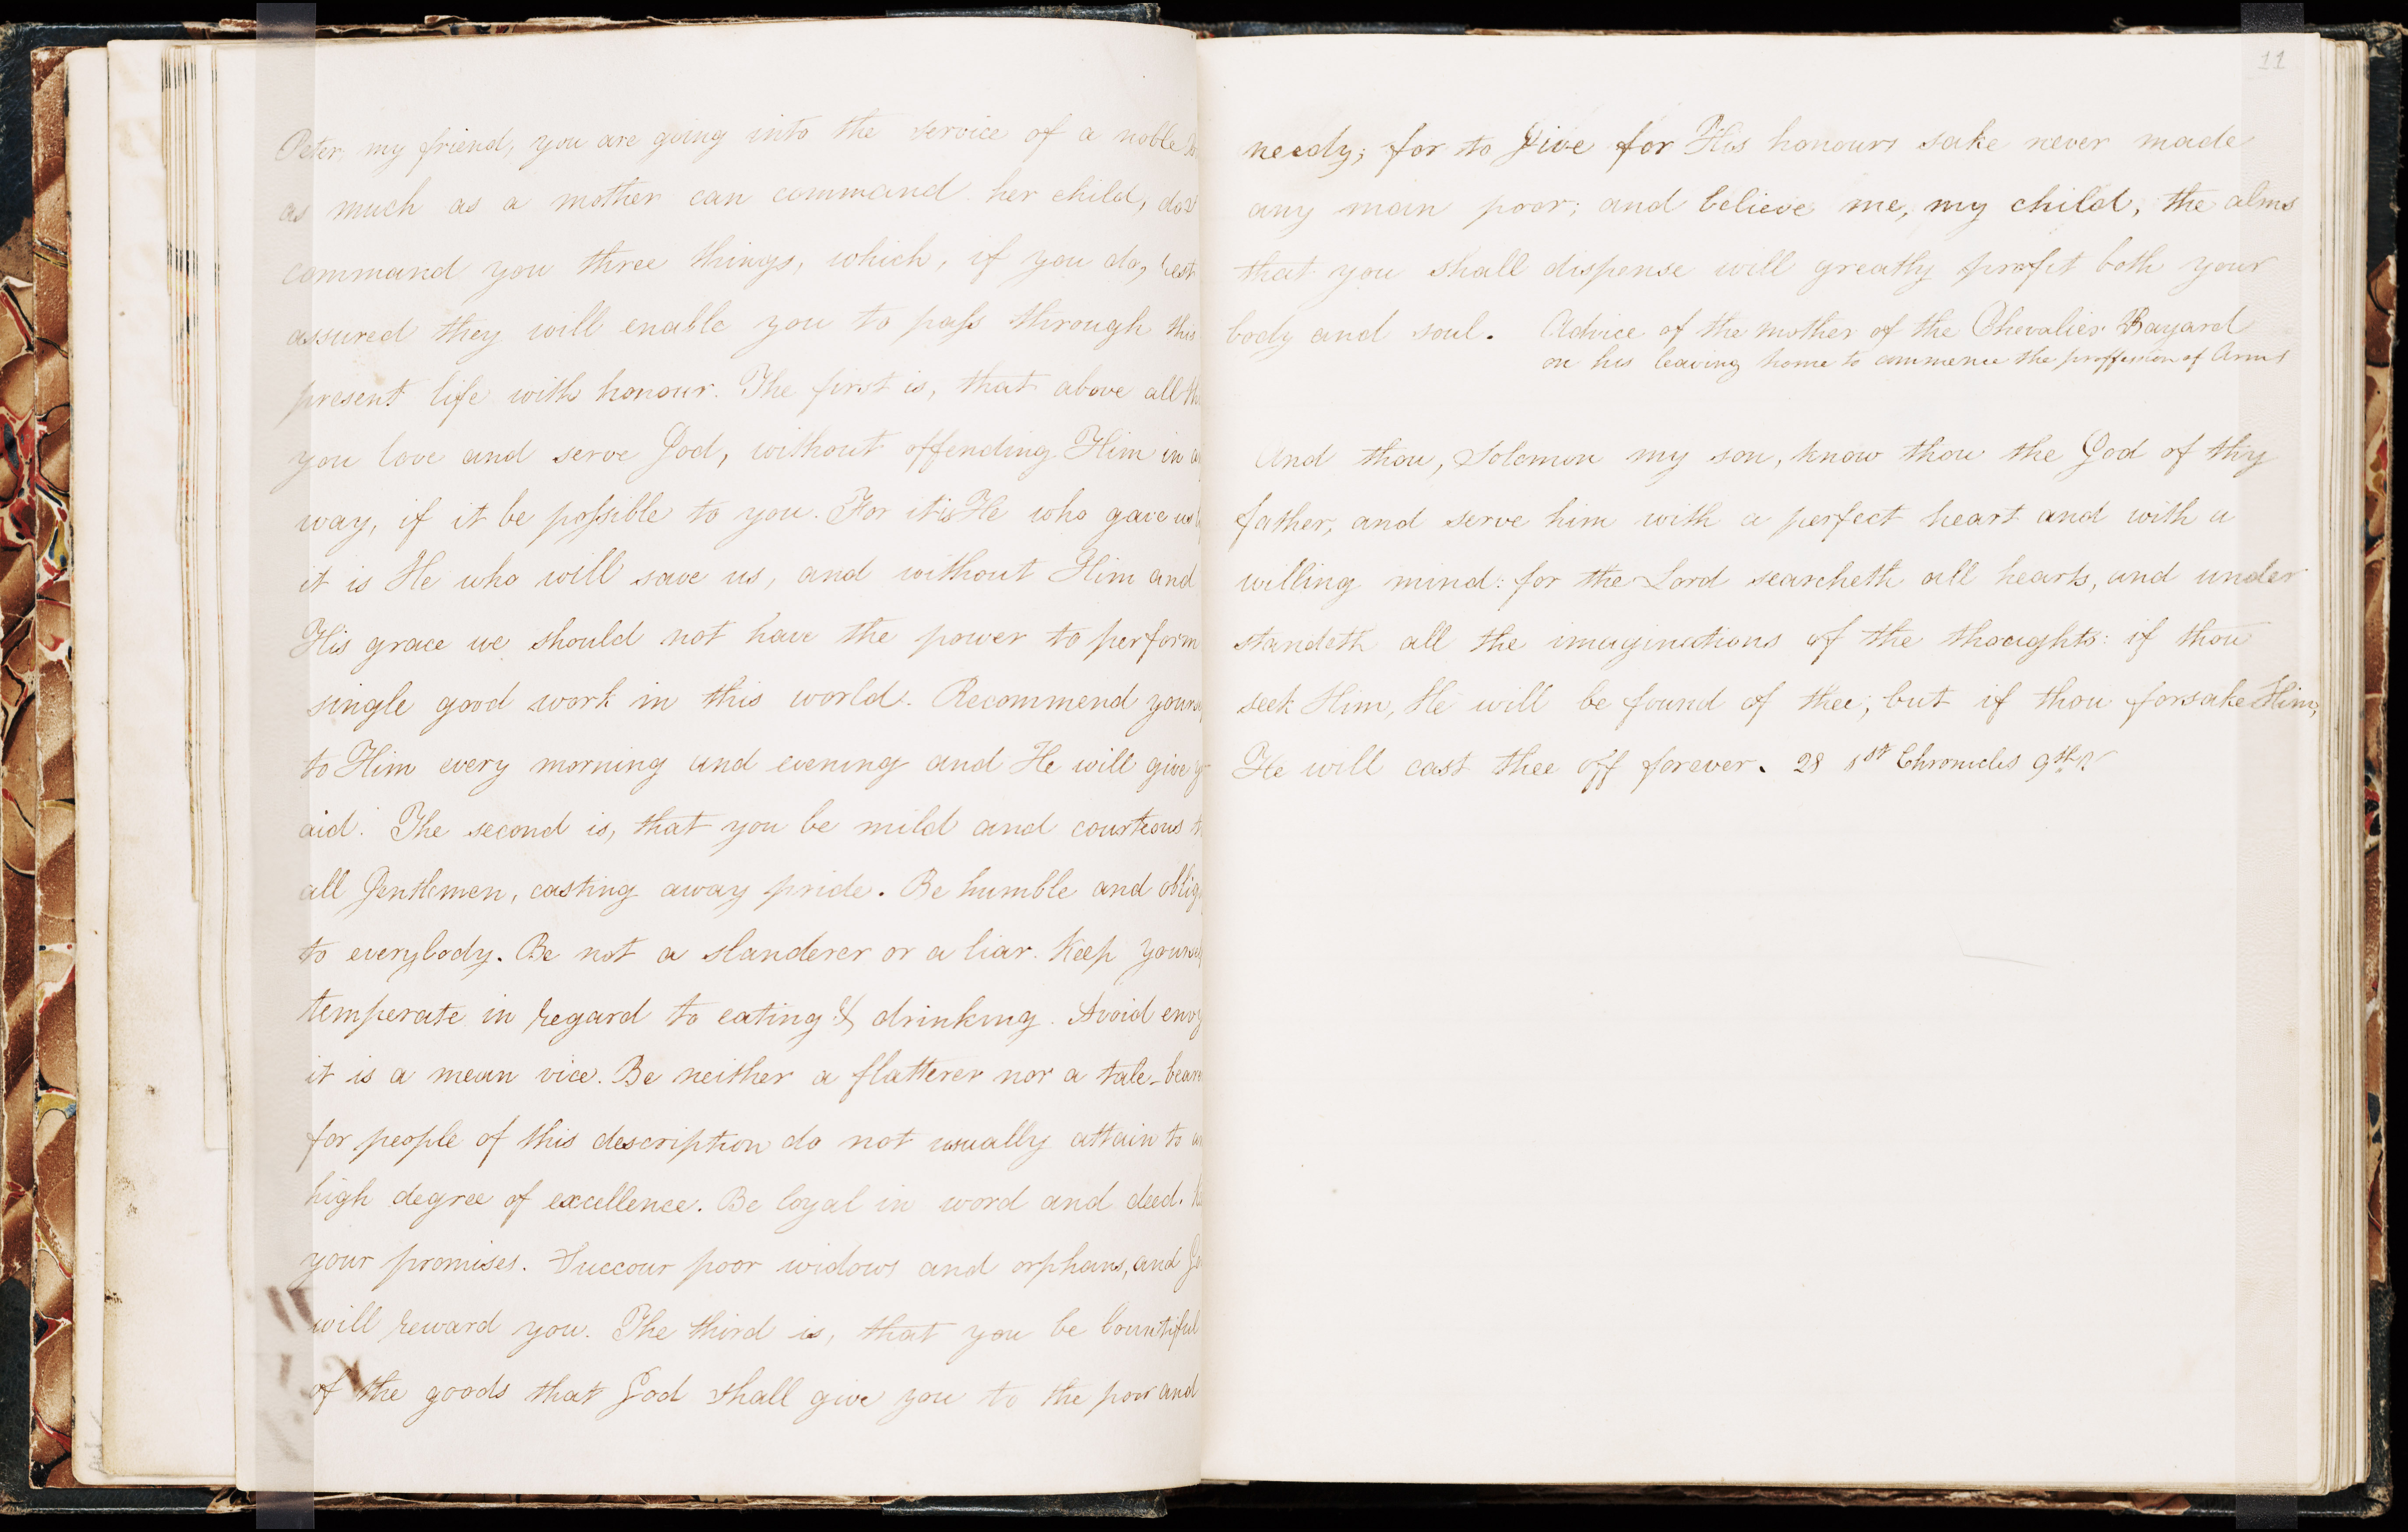 Peter, my friend, you are going into the service of a noble
as much as a mother can command her child, do I
command you three things, which, if you do, rest
assured they will enable you to pass through this
present life with honour. The first is, that above all th
you love and serve God, without offending Him in a
way, if it be possible to you. For it is He who gave us
it is He who will save us, and without Him and
His grace we should not have the power to perform
single good work in this world. Recommend yours
to Him every morning and evening and He will give y
aid. The second is, that you be mild and courteous t
all Gentlemen, casting away pride. Be humble and oblig
to everybody. Be not a slanderer or a liar. Keep yourse
temperate in regard to eating & drinking. Avoid envy
it is a mean vice. Be neither a flatterer nor a tale-beare
for people of this description do not usually attain to a
high degree of excellence. Be loyal in word and deed.
your promises. Succour poor widows and orphans, and Go
will reward you. The third is, that you be bountiful
of the goods that God shall give you to the poor and
11
needy; for to Give for His honours sake never made
any man poor; and believe me, my child, the alms
that you shall dispense will greatly profit both your
body and soul. Advice of the mother of the Chevalier Bayard
on his leaving home to commence the proffession of Arms
And thou, Solomon my son, know thou the God of thy
father, and serve him with a perfect heart and with a
willing mind: for the Lord searcheth all hearts, and under
standeth all the imaginations of the thoughts: if thou
seek Him, He will be found of thee; but if thou forsake Him,
He will cast thee off forever. 28 1st Chronicles 9th V